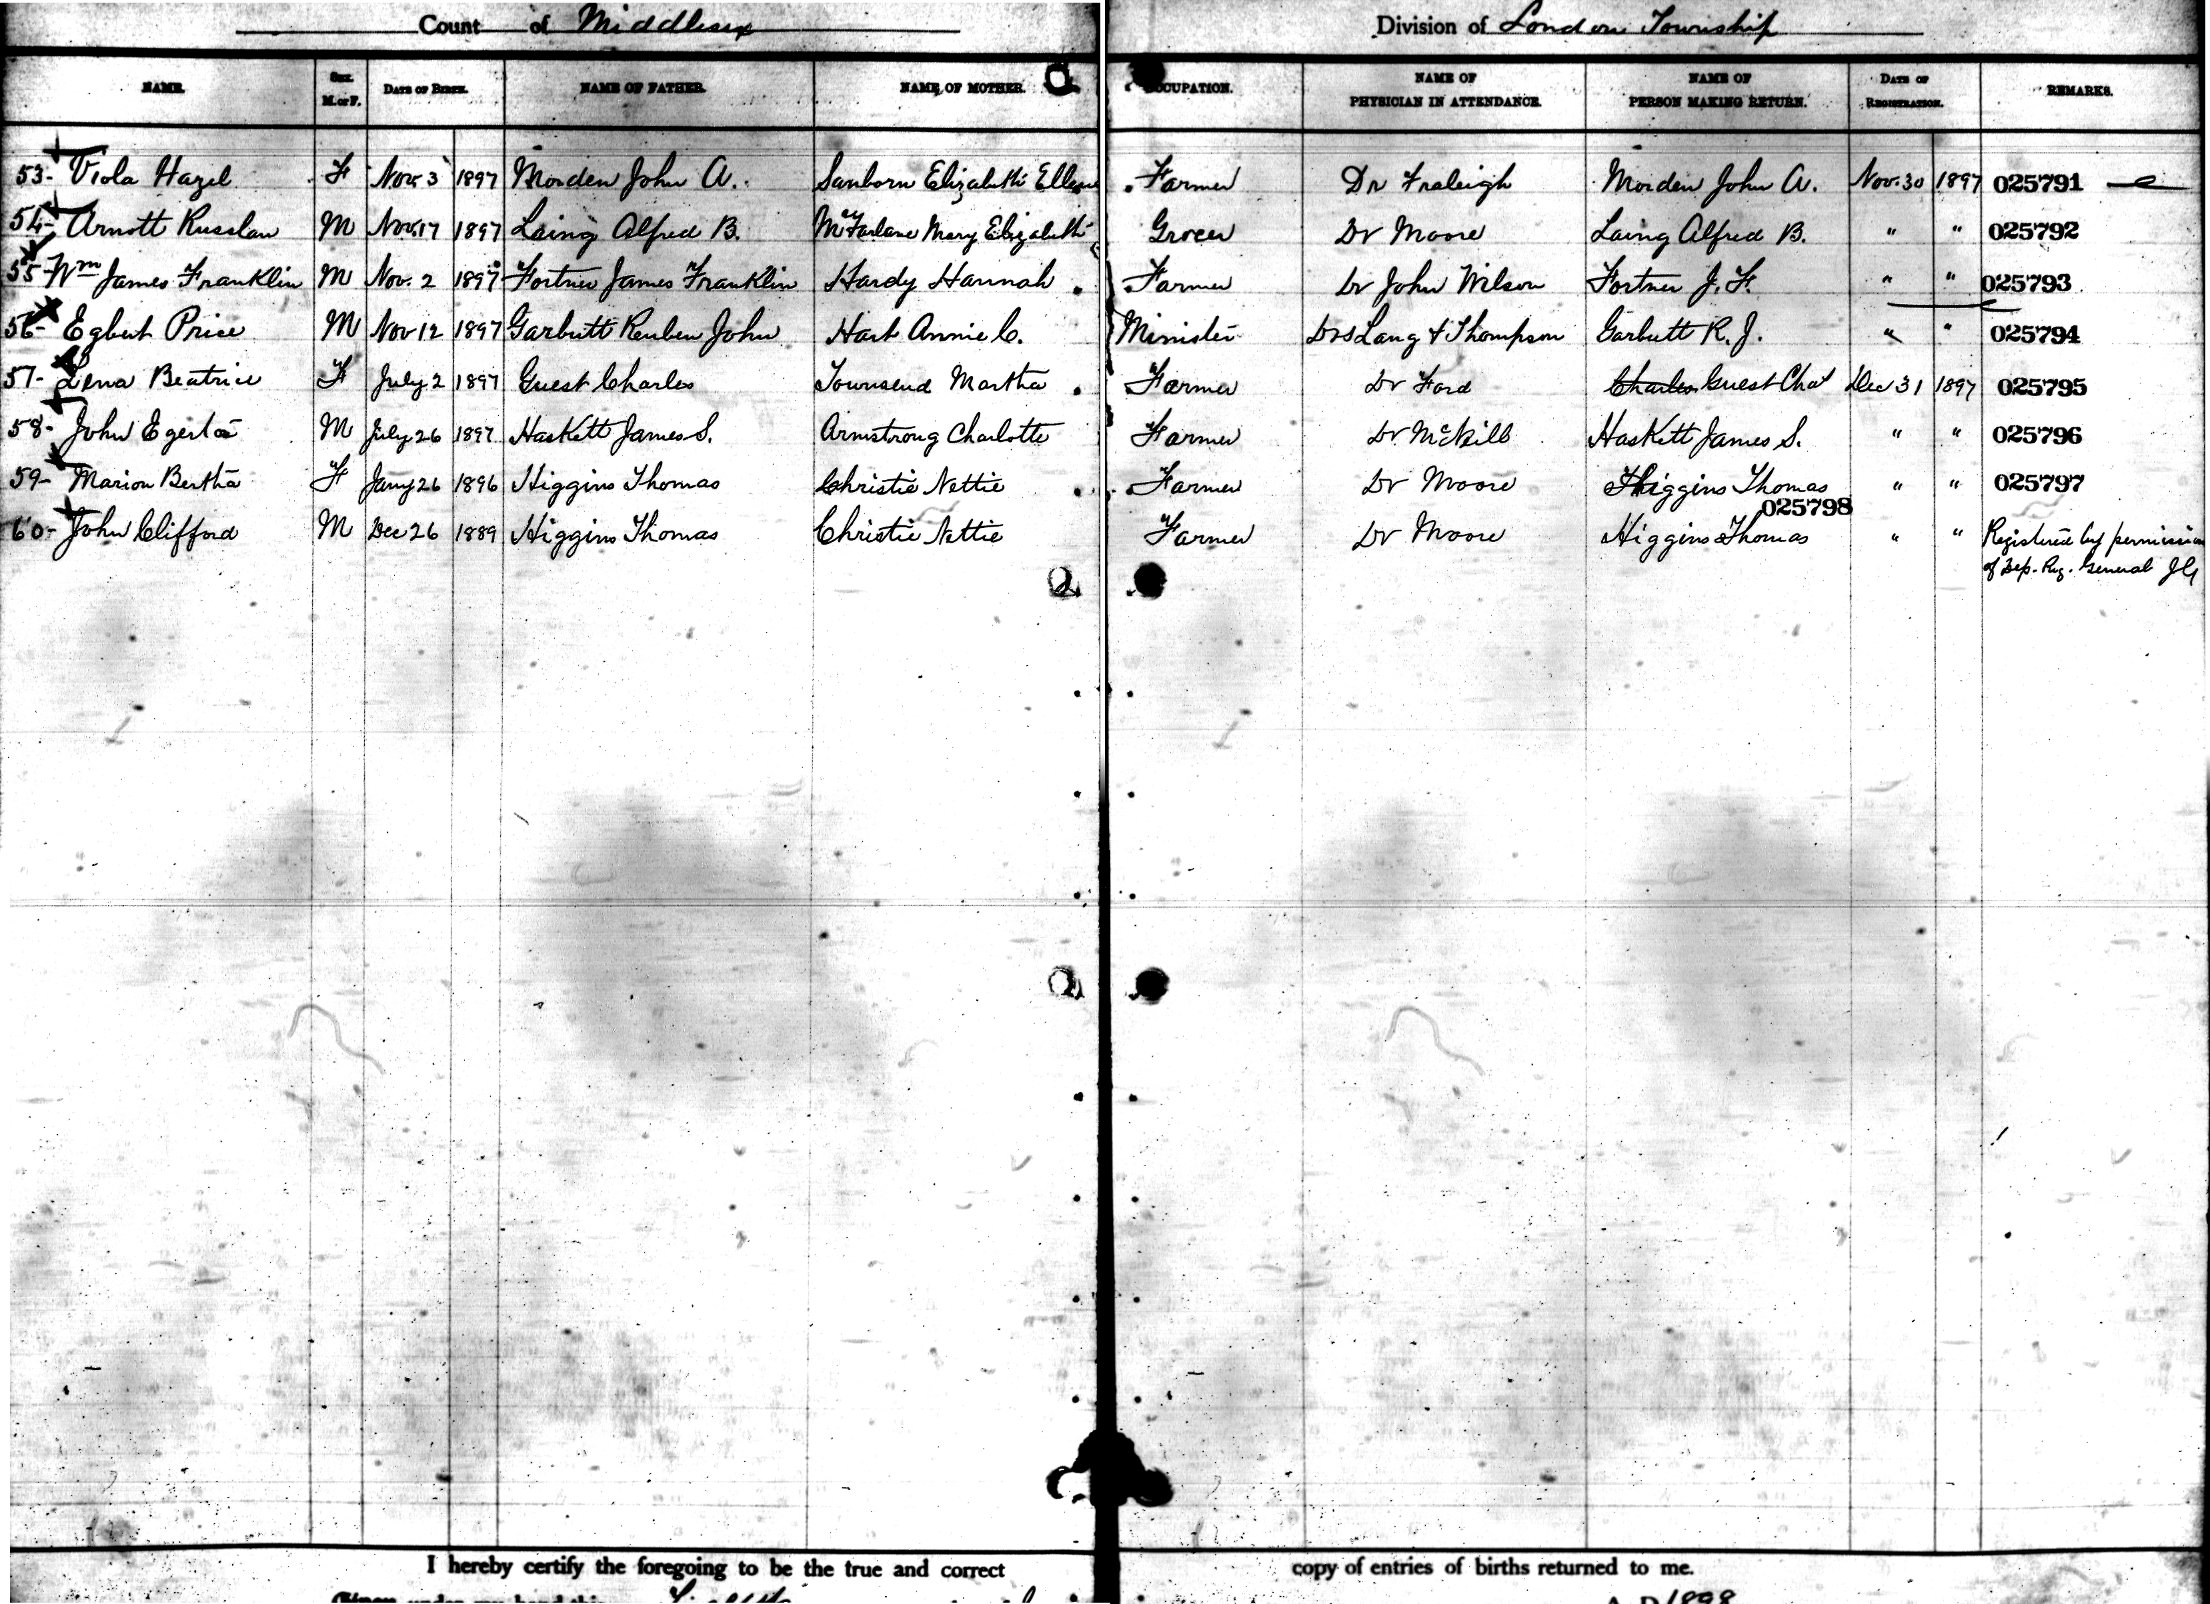 Count of Middlesex Division of London Township
NAME. Sex. M. or F. DATE OF BIRTH. NAME OF FATHER. NAME OF MOTHER. OCCUPATION. NAME OF PHYSICIAN IN ATTENDANCE. NAME OF PERSON MAKING RETURN. DATE OF REGISTRATION. REMARKS.
53- Viola Hazel F Nov. 3 1897 Morden John A. Sanborn Elizabeth Ellen Farmer Dr Fraleigh Morden John A. Nov. 30 1897 025791
54- Arnott Russlan M Nov. 17 1897 Laing Alfred B. McFarlane Mary Elizabeth Grocer Dr Moore Laing Alfred B. " " 025792
55- Wm James Franklin M Nov. 2 1897 Fortner James Franklin Hardy Hannah Farmer Dr John Wilson Fortner J. F. " " 025793
56- Egbert Price M Nov 12 1897 Garbutt Reuben John Hart Annie C. Minister Drs Lang & Thompson Garbutt R. J. " " 025794
57- Lena Beatrice F July 2 1897 Guest Charles Townsend Martha Farmer Dr Ford Charles Guest Chas Dec 31 1897 025795
58- John Egerton M July 26 1897 Haskett James S. Armstrong Charlotte Farmer Dr McNeill Haskett James S. " " 025796
59- Marion Bertha F Jany 26 1896 Higgins Thomas Christie Nettie Farmer Dr Moore Higgins Thomas " " 025797
025798
60- John Clifford M Dec 26 1889 Higgins Thomas Christie Nettie Farmer Dr Moore Higgins Thomas " " Registered by permission
of Dep. Reg. General JG
I hereby certify the foregoing to be the true and correct copy of entries of births returned to me.
Given under my hand this A. D. 1898